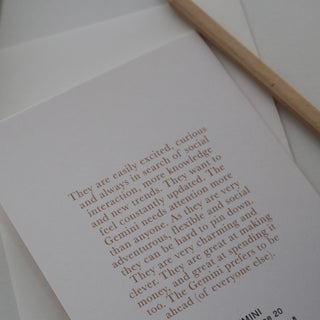 They are easily excited, curious
and always in search of social
interaction, more knowledge
and new trends. They want to
feel constantly updated. The
Gemini needs attention more
than anyone. As they are very
adventurous, flexible and social
they can be hard to pin down.
They are very charming and
clever. They are great at making
money, and great at spending it
too. The Gemini prefers to be
ahead (of everyone else).
GEMINI
20